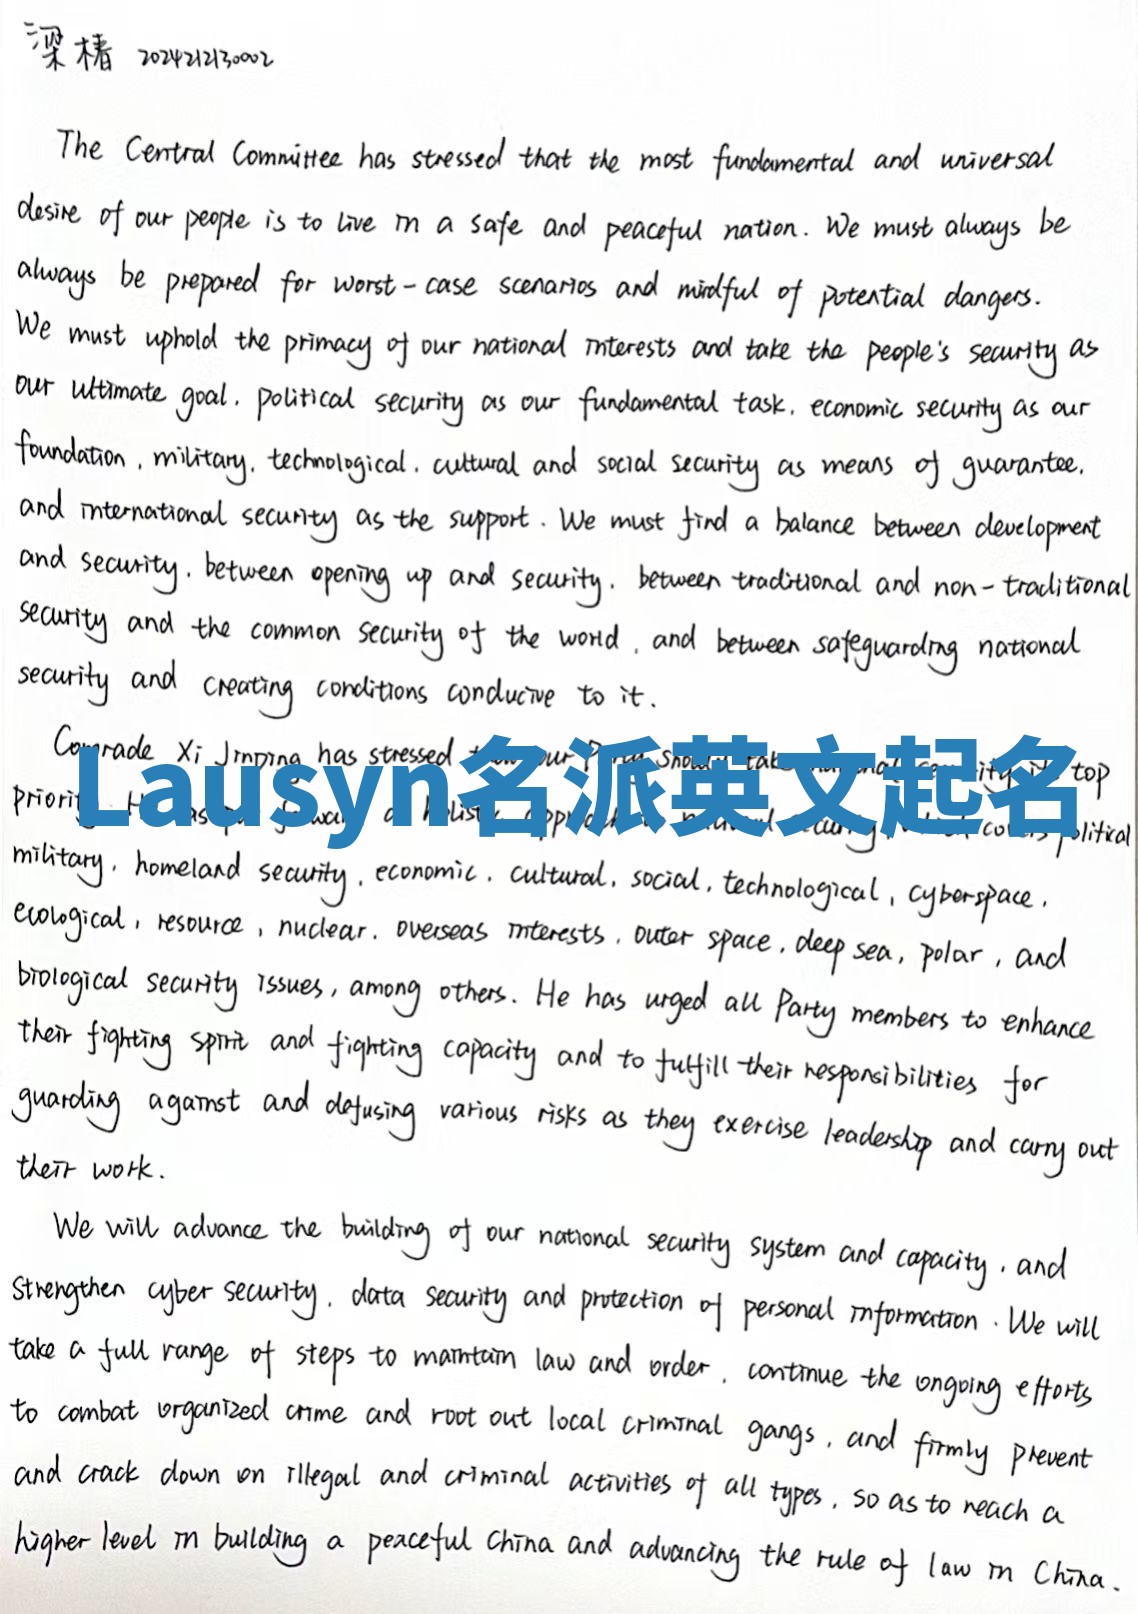 梁椿 2024212130002
The Central Committee has stressed that the most fundamental and universal
desire of our people is to live in a safe and peaceful nation. We must always be
always be prepared for worst-case scenarios and mindful of potential dangers.
We must uphold the primacy of our national interests and take the people's security as
our ultimate goal, political security as our fundamental task, economic security as our
foundation, military, technological, cultural and social security as means of guarantee,
and international security as the support. We must find a balance between development
and security, between opening up and security, between traditional and non-traditional
security and the common security of the world, and between safeguarding national
security and creating conditions conducive to it.
Comrade Xi Jinping has stressed our top
Lausyn名派英文起名
a holistic political
military, homeland security, economic, cultural, social, technological, cyberspace,
ecological, resource, nuclear, overseas interests, outer space, deep sea, polar, and
biological security issues, among others. He has urged all Party members to enhance
their fighting spirit and fighting capacity and to fulfill their responsibilities for
guarding against and defusing various risks as they exercise leadership and carry out
their work.
We will advance the building of our national security system and capacity, and
strengthen cyber security, data security and protection of personal information. We will
take a full range of steps to maintain law and order, continue the ongoing efforts
to combat organized crime and root out local criminal gangs, and firmly prevent
and crack down on illegal and criminal activities of all types, so as to reach a
higher level in building a peaceful China and advancing the rule of law in China.